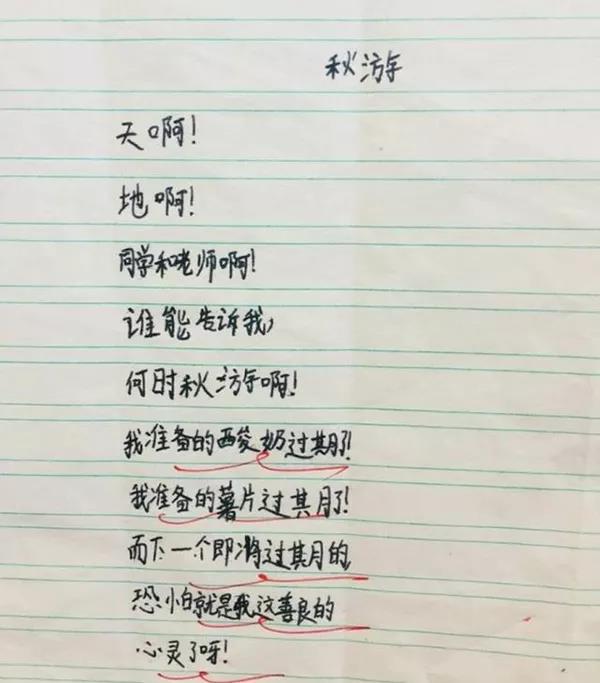 秋游
天啊！
地啊！
同学和老师啊！
谁能告诉我，
何时秋游啊！
我准备的酸奶过期了！
我准备的薯片过期了！
而下一个即将过期的
恐怕就是我这善良的
心灵了呀！